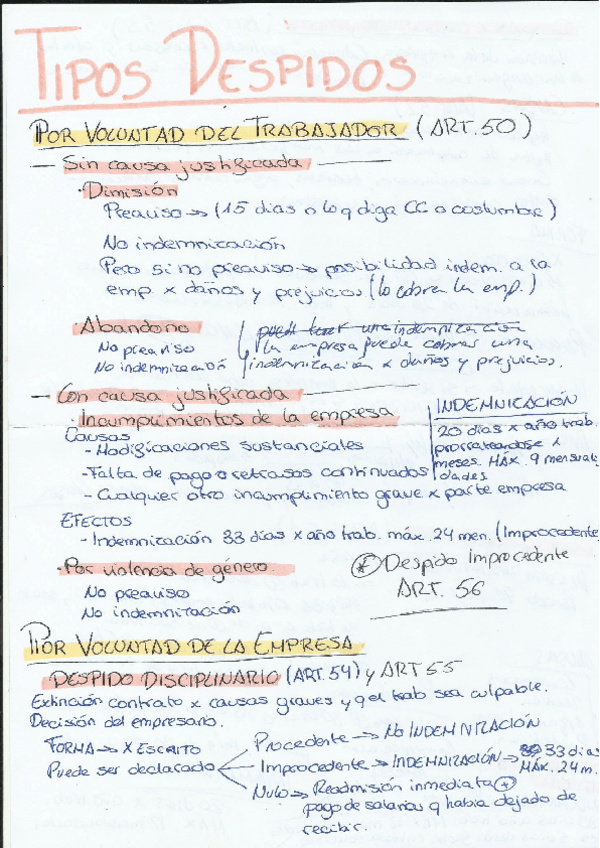 TIPOS DESPIDOS
POR VOLUNTAD DEL TRABAJADOR (ART. 50)
— Sin causa justificada
· Dimisión
Preaviso → (15 dias o lo q diga CC o costumbre)
No indemnización
Pero si no preaviso → posibilidad indem. a la
emp. x daños y prejuicios (lo cobra la emp.)
· Abandono
No preaviso
No indemnización
puede tener una indemnización
la empresa puede cobrar una
indemnización x daños y prejuicios.
— Con causa justificada
· Incumplimientos de la empresa
Causas
- Modificaciones sustanciales
- Falta de pago o retrasos continuados
- Cualquier otro incumplimiento grave x parte empresa
INDEMNICACIÓN
20 dias x año trab.
prorrateandose x
meses. MÁX. 9 mensuali
dades
EFECTOS
- Indemnización 33 días x año trab. máx. 24 men. (Improcedente
· Por violencia de género
No preaviso
No indemnización
* Despido Improcedente
ART. 56
POR VOLUNTAD DE LA EMPRESA
DESPIDO DISCIPLINARIO (ART. 54) y ART 55
Extinción contrato x causas graves y q el trab sea culpable.
Decisión del empresario.
FORMA → X ESCRITO
Puede ser declarado
Procedente → No INDEMNIZACIÓN
Improcedente → INDEMNIZACIÓN → 33 dias
MÁX. 24 m.
Nulo → Readmisión inmediata *
pago de salarios q habia dejado de
recibir.